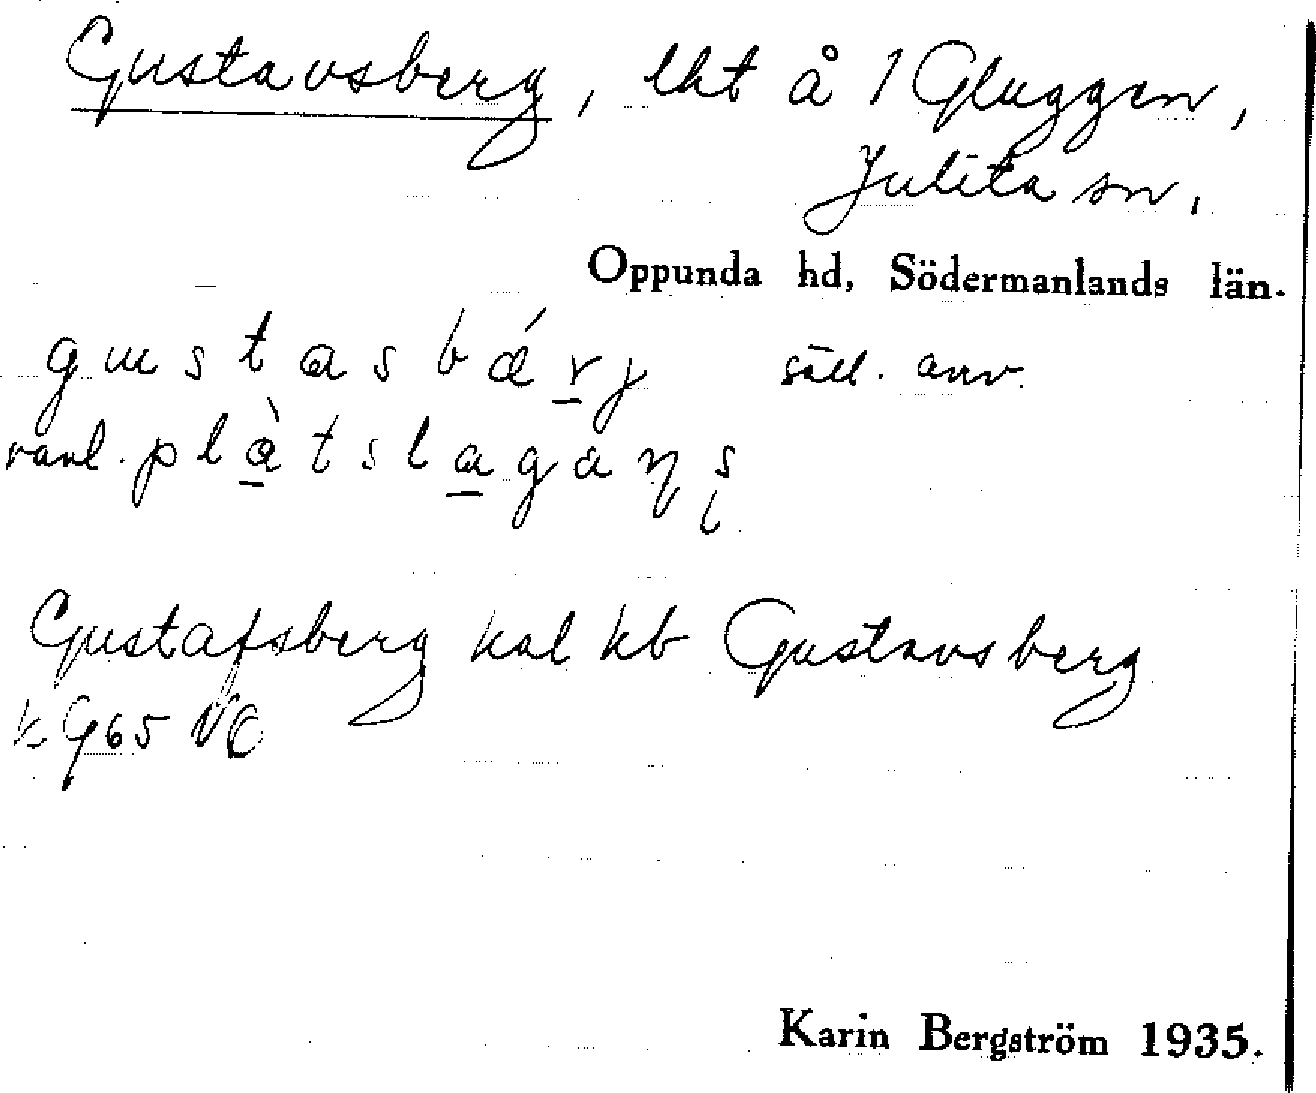 Gustavsberg, lht å 1 Gluggen,
Julita sn.
Oppunda hd, Södermanlands län.
gustasbǽrj säll. anv.
vanl. plàtslagaŋs
Gustafsberg kal kb Gustavsberg
k G65 NO
Karin Bergström 1935.